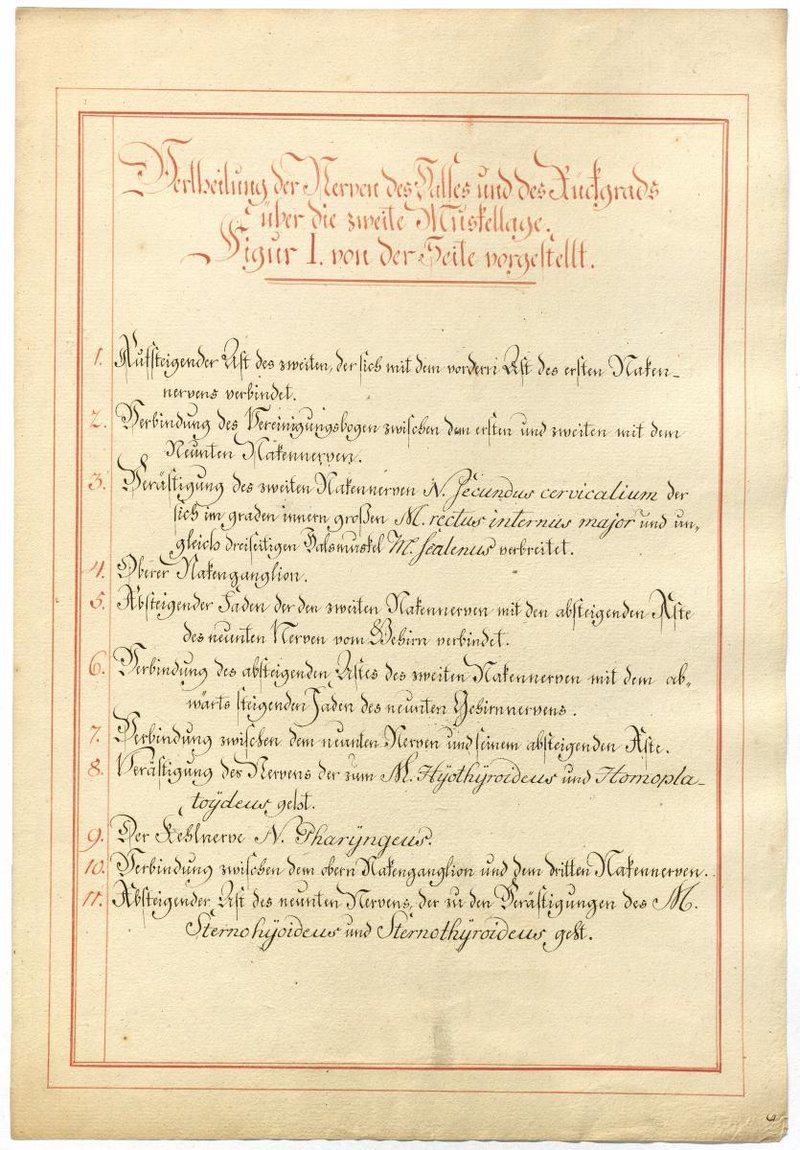 Vertheilung der Nerven des Halses und des Rückgrads
über die zweite Muskellage.
Figur I. von der Seite vorgestellt.
1. Aufsteigender Ast des zweiten, der sich mit dem vordern Ast des ersten Naken-
nervens verbindet.
2. Verbindung des Vereinigungsbogen zwischen dem ersten und zweiten mit dem
Neunten Nakennerven.
3. Verästigung des zweiten Nakennerven N. Secundus cervicalium der
sich im graden innern großen M. rectus internus major und un„
gleich dreiseitigen Halsmuskel M. scalenus verbreitet.
4. Oberer Nakenganglion.
5. Absteigender Faden der den zweiten Nakennerven mit den absteigenden Äste
des neunten Nerven vom Gehirn verbindet.
6. Verbindung des absteigenden Astes des zweiten Nakennerven mit dem ab„
wärts steigenden Faden des neunten Gehirnnervens.
7. Verbindung zwischen dem neunten Nerven und seinem absteigenden Äste.
8. Verästigung des Nervens der zum M. Hÿothÿroideus und Homopla-
toÿdeus geht.
9. Der Kehlnerve N. Pharÿngeus.
10. Verbindung zwischen dem obern Nakenganglion und dem dritten Nakennerven.
11. Absteigender Ast des neunten Nervens, der zu den Verästigungen des M.
Sternohÿoideus und Sternothÿroideus geht.